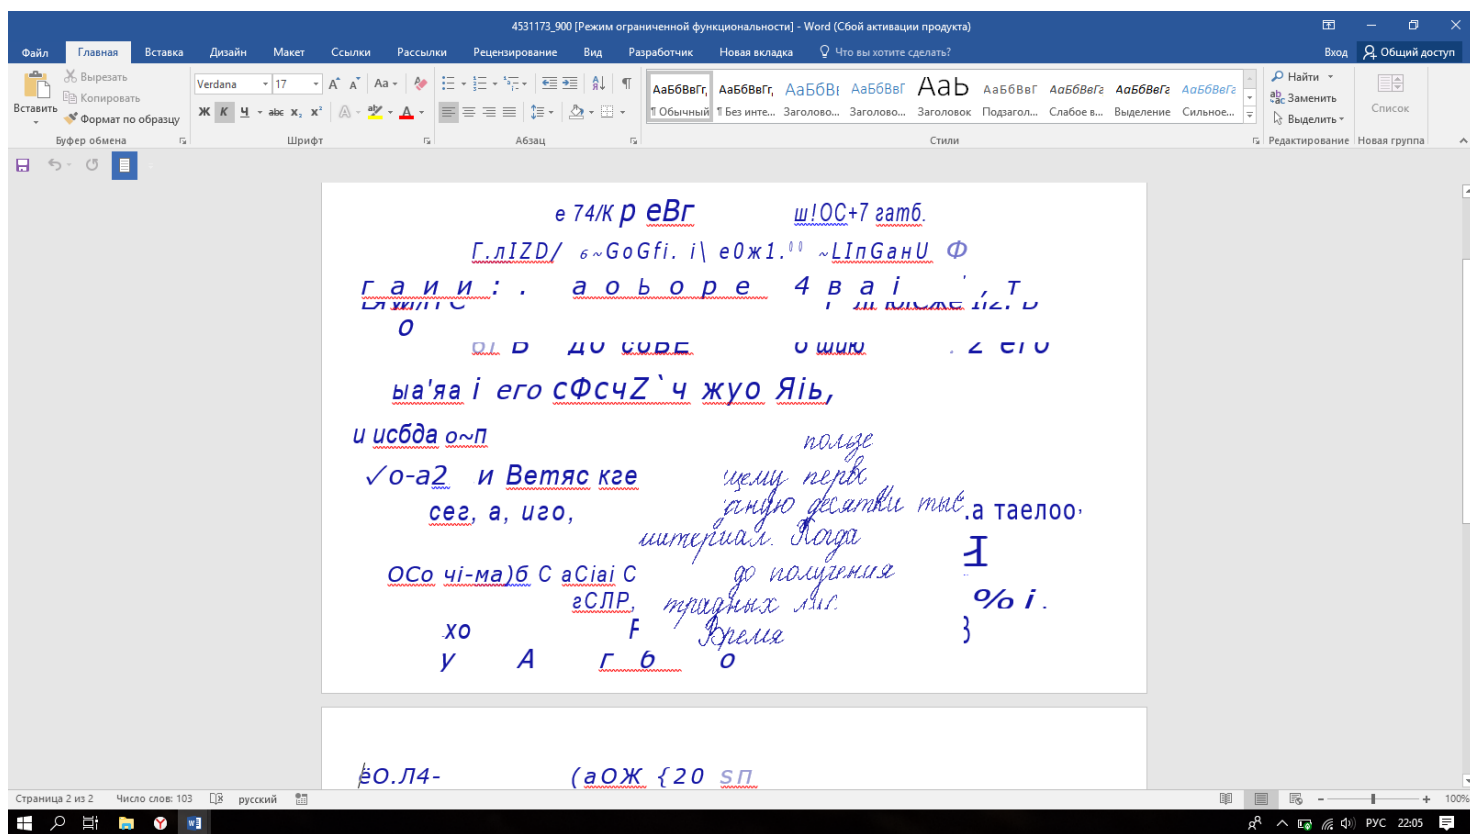 4531173_900 [Режим ограниченной функциональности] - Word (Сбой активации продукта)
Файл Главная Вставка Дизайн Макет Ссылки Рассылки Рецензирование Вид Разработчик Новая вкладка Что вы хотите сделать? Вход Общий доступ
Вставить
Вырезать
Копировать
Формат по образцу
Буфер обмена
Verdana 17
Шрифт
Абзац
АаБбВвГг, АаБбВвГг, АаБбВі АаБбВвГ АаЬ АаБбВвГ АаБбВвГг АаБбВвГг АаБбВвГг
¶ Обычный ¶ Без инте... Заголово... Заголово... Заголовок Подзагол... Слабое в... Выделение Сильное...
Стили
Найти
Заменить
Выделить
Редактирование
Список
Новая группа
е 74/К р еВг ш!ОС+7 гатб.
Г.лIZD/ 6~GoGfi. i\ е0ж1.⁰⁰ ~LIпGанU Ф
г а и и : . а о Ь о р е 4 в а і ' , т
о
ыа'яа і его сФсчZ`ч жуо Яіь,
и исбда о~п
пользе
✓о-а2 и Ветяс кге
щему перв
сег, а, иго,
десятки тыс
.а таелоо,
материал. Когда
ОСо чі-ма)б С аСіаі С
до получения
гСЛР,
традных лиг.
% і .
хо
Время
у А г б о
ёО.Л4- (аОЖ {20 ѕп
Страница 2 из 2 Число слов: 103 русский 100%
РУС 22:05